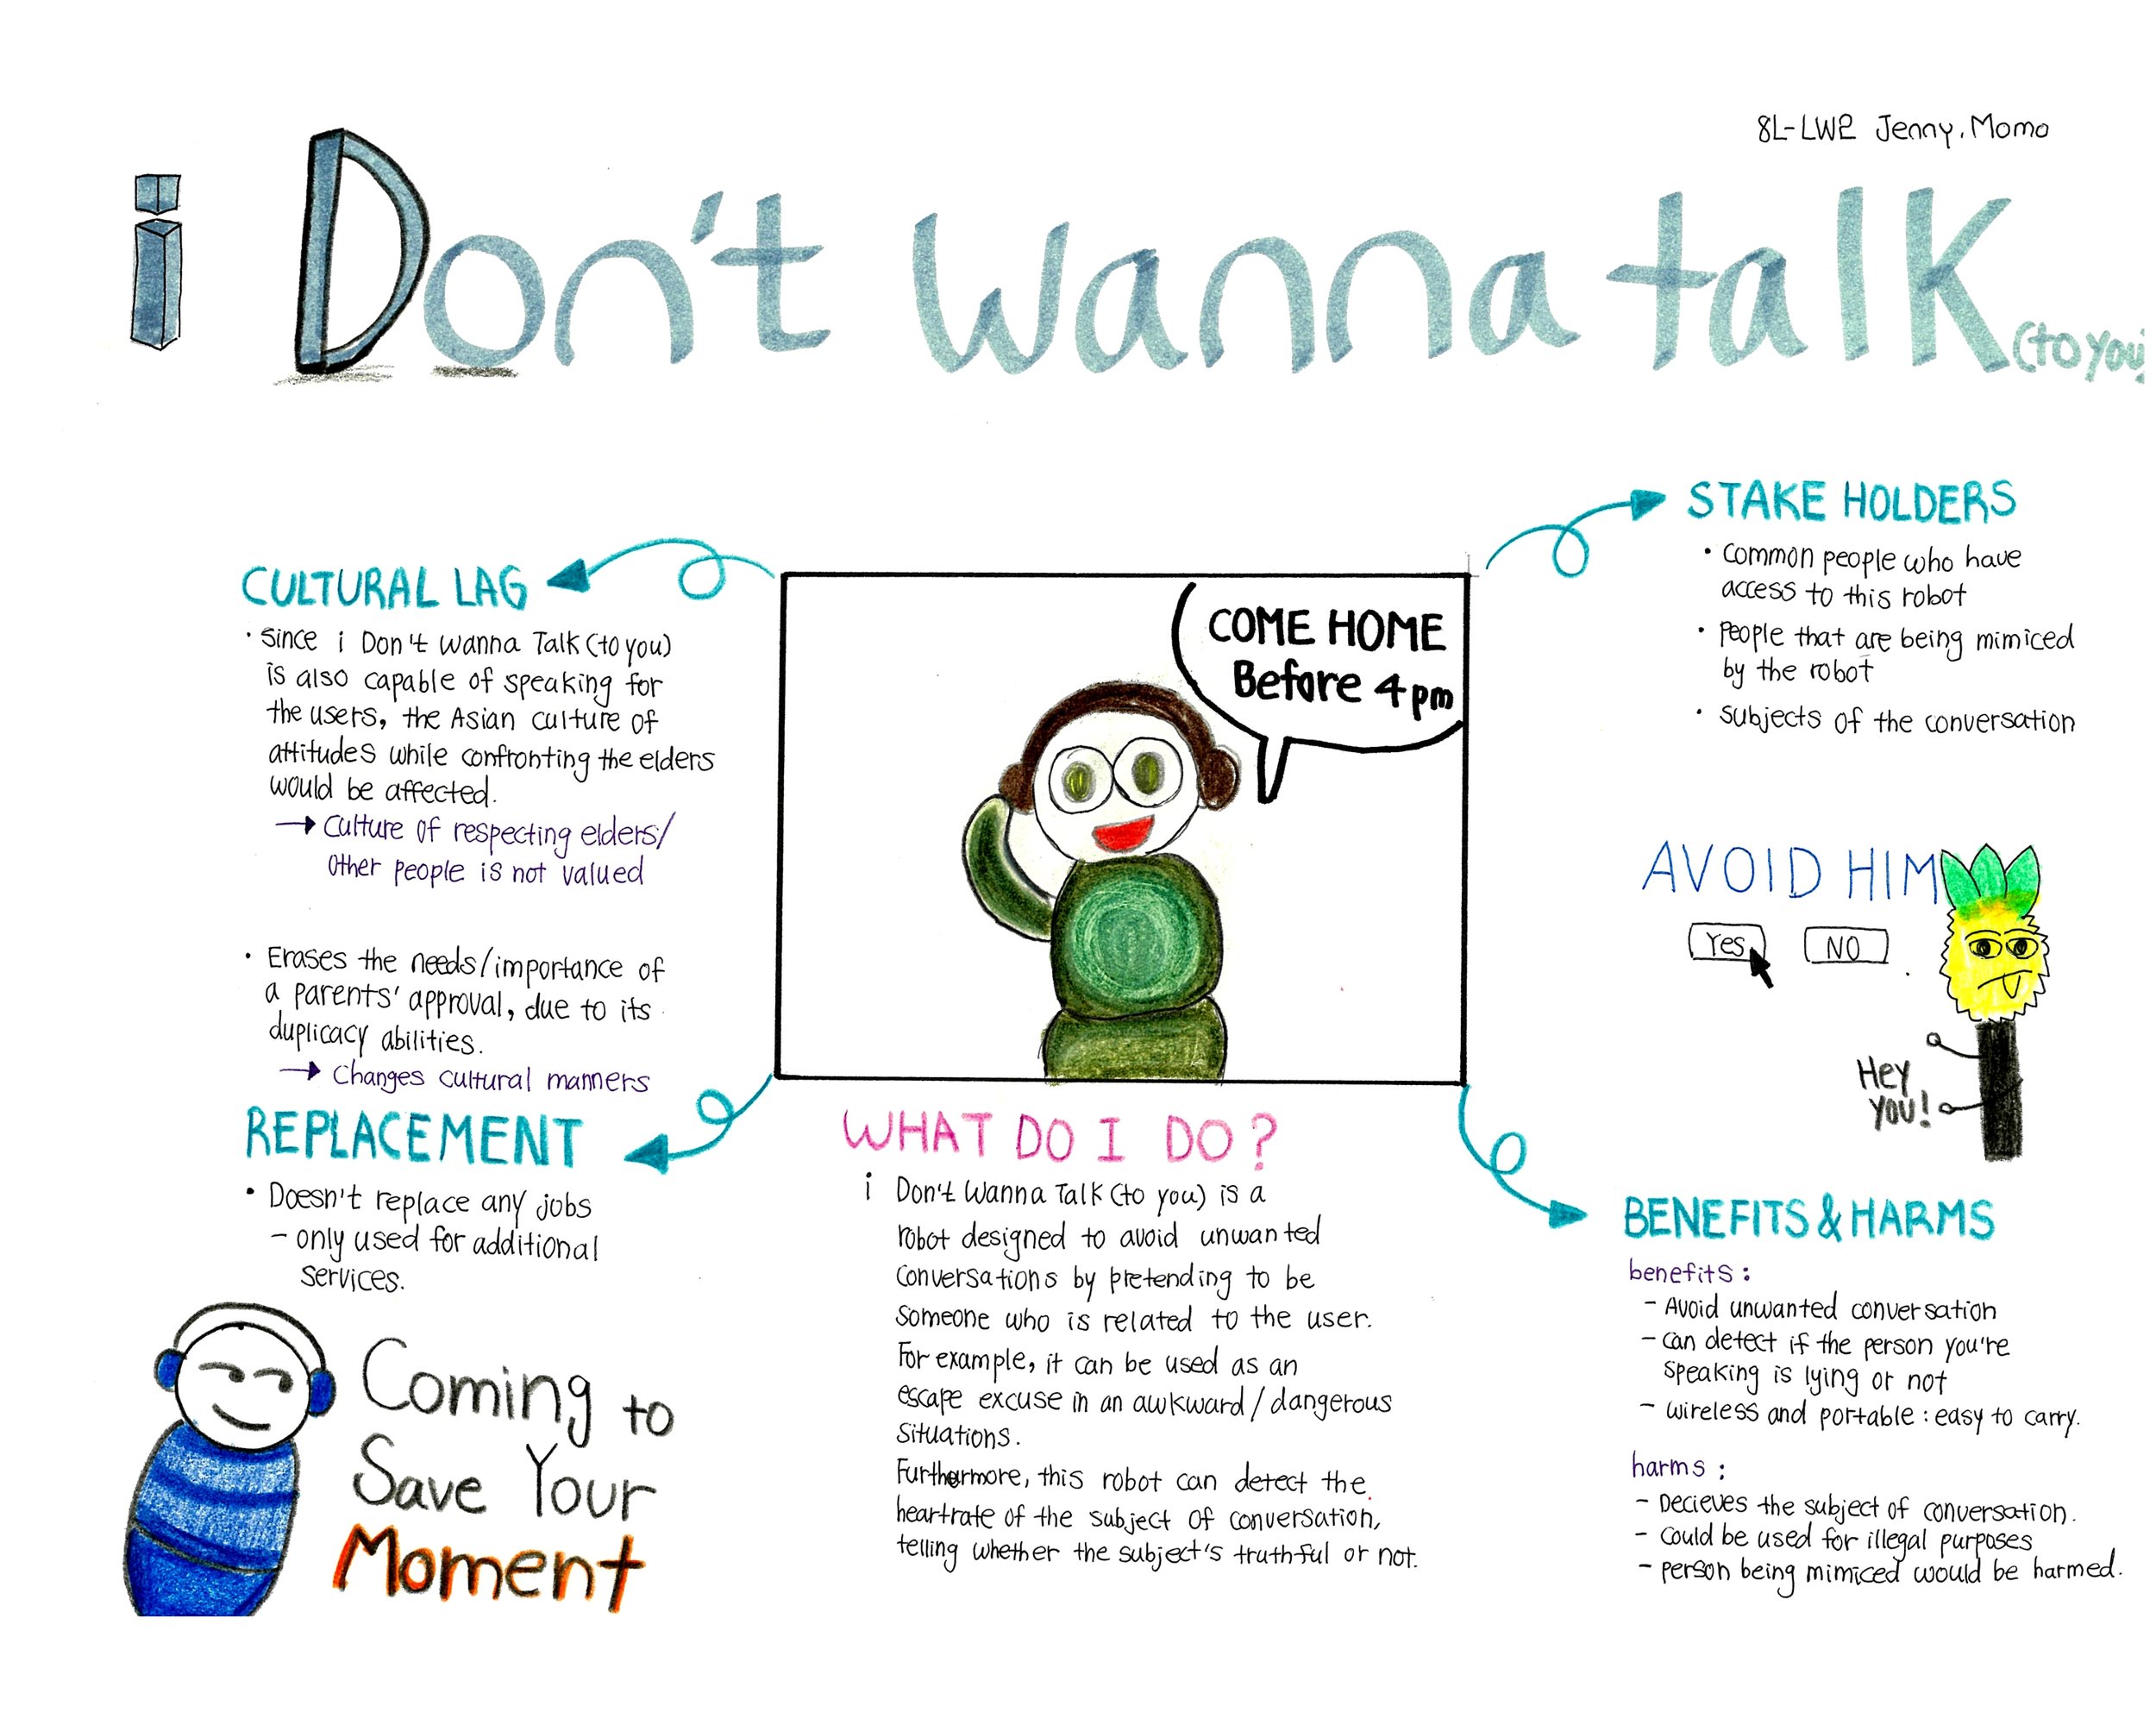 8L-LW2 Jenny, Momo
i Don't Wanna talk (to you)
CULTURAL LAG
• Since i Don't Wanna Talk (to you)
is also capable of speaking for
the users, the Asian culture of
attitudes while confronting the elders
would be affected.
→ Culture of respecting elders/
other people is not valued
• Erases the needs/importance of
a parents' approval, due to its
duplicacy abilities.
→ Changes cultural manners
REPLACEMENT
• Doesn't replace any jobs
- only used for additional
services.
Coming to
Save Your
Moment
COME HOME
Before 4pm
WHAT DO I DO?
i Don't Wanna Talk (to you) is a
robot designed to avoid unwanted
conversations by pretending to be
someone who is related to the user.
For example, it can be used as an
escape excuse in an awkward/dangerous
situations.
Furthermore, this robot can detect the
heartrate of the subject of conversation,
telling whether the subject's truthful or not.
STAKE HOLDERS
• Common people who have
access to this robot
• People that are being mimiced
by the robot
• Subjects of the conversation
AVOID HIM
Yes NO
Hey
you!
BENEFITS & HARMS
benefits:
- Avoid unwanted conversation
- can detect if the person you're
speaking is lying or not
- wireless and portable : easy to carry.
harms :
- Decieves the subject of conversation.
- Could be used for illegal purposes
- person being mimiced would be harmed.